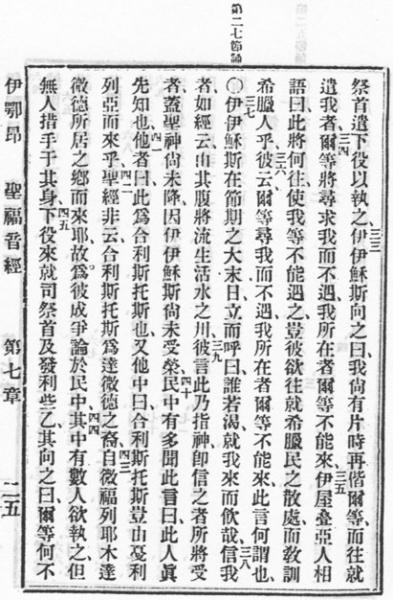 第二七節論
祭首遣下役以執之、三三伊伊穌斯向之曰、我尚有片時再偕爾等、而往就
遣我者、三四爾等將尋求我而不遇、我所在者爾等不能來、三五伊屋疊亞人相
語曰、此將何往、使我等不能遇之、豈彼欲往就希臘民之散處、而敎訓
希臘人乎、三六彼云爾等尋我而不遇、我所在者爾等不能來、此言何謂也、
三七〇伊伊穌斯在節期之大末日、立而呼曰、誰若渴、就我來而飲哉、三八信我
者、如經云、由其腹將流生活水之川、三九彼言此乃指神、卽信之者所將受
者、蓋聖神尚未降、因伊伊穌斯尚未受榮、四十民中有多聞此言、曰、此人眞
先知也、四一他者曰、此爲合利斯托斯也、又他中曰、合利斯托斯豈由戛利
列亞而來乎、四二聖經非云、合利斯托斯爲達微德之裔、自微福列耶木達
微德所居之鄉而來耶、四三故爲彼成爭論於民中、四四其中有數人欲執之、但
無人措手于其身、四五下役來就司祭首及發利些乙、其向之曰、爾等何不
伊鄂昂 聖福音經 第七章 二五